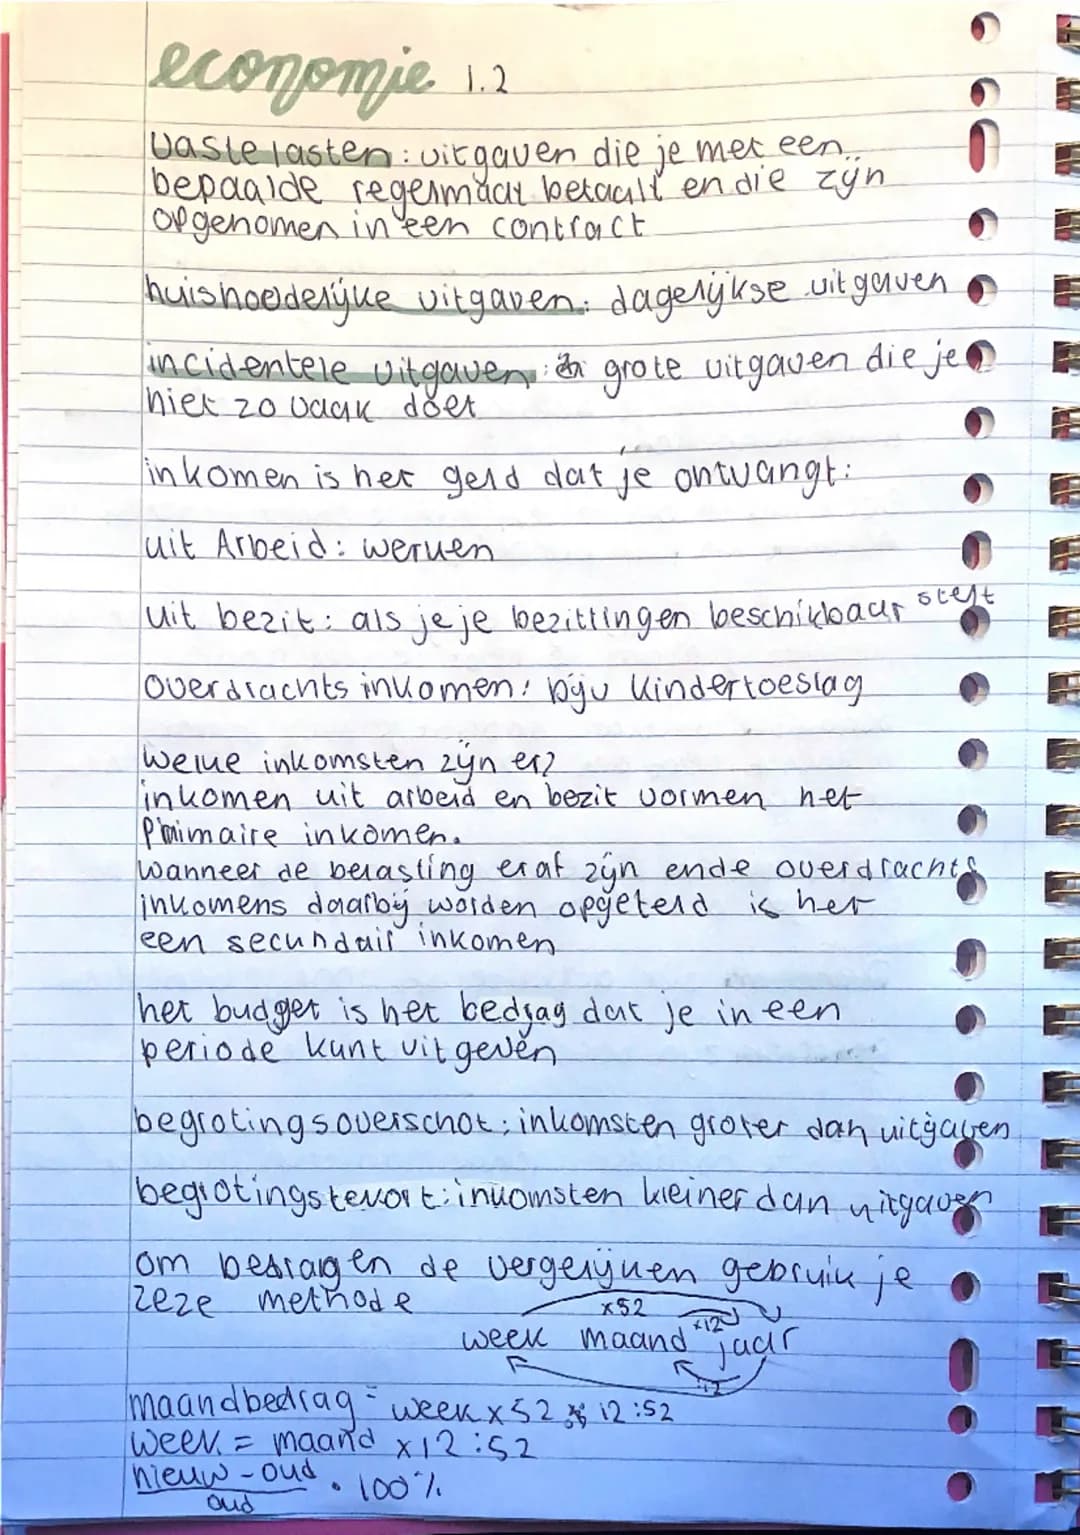 economie 1.2
vaste lasten: uitgaven die je met een
bepaalde regelmaat betaalt en die zijn
opgenomen in een contract
huishoedelijke uitgaven: dagelijkse uitgaven
incidentele uitgaven: grote uitgaven die je
niet zo vaak doet
inkomen is het geld dat je ontvangt:
uit Arbeid: werken
uit bezit: als je je bezittingen beschikbaar stelt
overdrachts inkomen: bijv kindertoeslag
welke inkomsten zijn er?
inkomen uit arbeid en bezit vormen het
Primaire inkomen.
wanneer de belasting eraf zijn en de overdrachts
inkomens daarbij worden opgeteld is het
een secundair inkomen
het budget is het bedrag dat je in een
periode kunt uitgeven
begrotingsoverschot: inkomsten groter dan uitgaven
begrotingstekort: inkomsten kleiner dan uitgaven
om bedragen de vergelijken gebruik je
deze methode
x52
x12
week maand jaar
:12
maandbedrag = week x 52 12:52
week = maand x12:52
nieuw - oud • 100%
oud